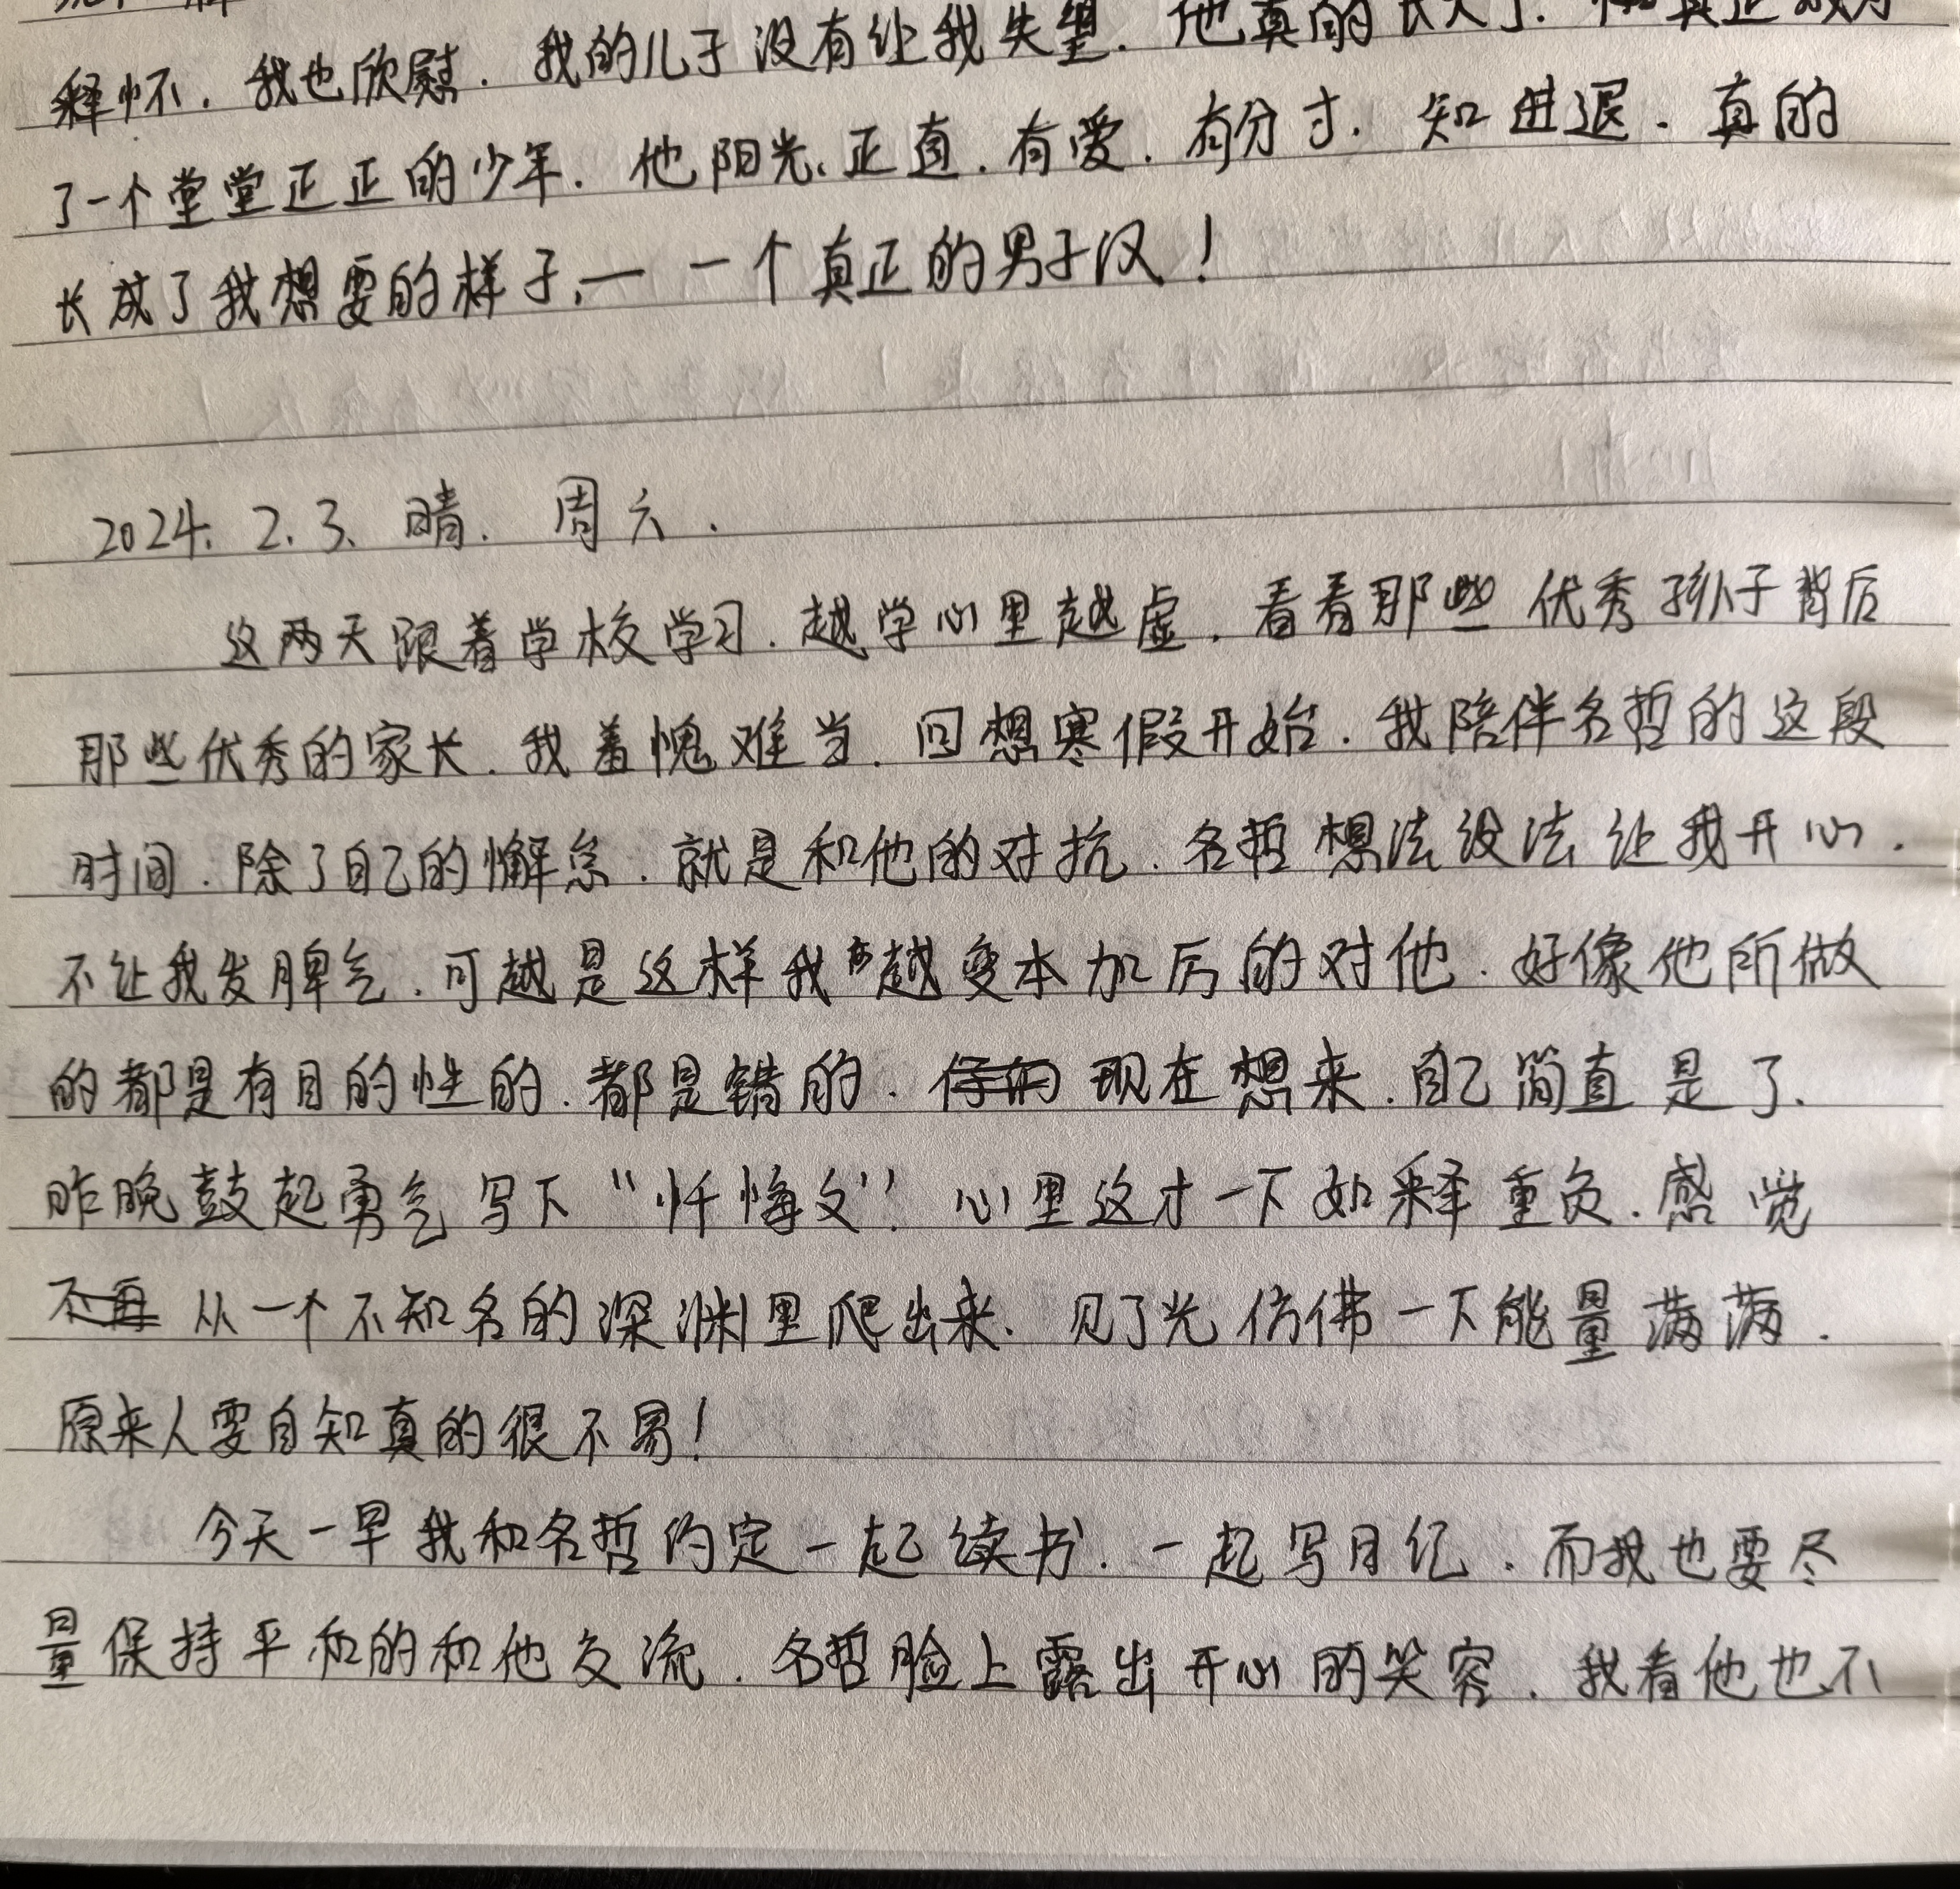 释怀.我也欣慰.我的儿子没有让我失望.他真的长大了.真正成为
了一个堂堂正正的少年.他阳光、正直.有爱.有分寸.知进退.真的
长成了我想要的样子,— 一个真正的男子汉!
2024. 2. 3、晴. 周六.
这两天跟着学校学习.越学心里越虚.看看那些优秀孩子背后
那些优秀的家长.我羞愧难当.回想寒假开始.我陪伴名哲的这段
时间.除了自己的懈怠.就是和他的对抗.名哲想法设法让我开心.
不让我发脾气.可越是这样我越变本加厉的对他.好像他所做
的都是有目的性的.都是错的.现在想来.自己简直是了.
昨晚鼓起勇气写下“忏悔文”!心里这才一下如释重负.感觉
不再 从一个不知名的深渊里爬出来.见了光仿佛一下能量满满.
原来人要自知真的很不易!
今天一早我和名哲约定一起读书.一起写日记.而我也要尽
量保持平和的和他交流.名哲脸上露出开心的笑容.我看他也不